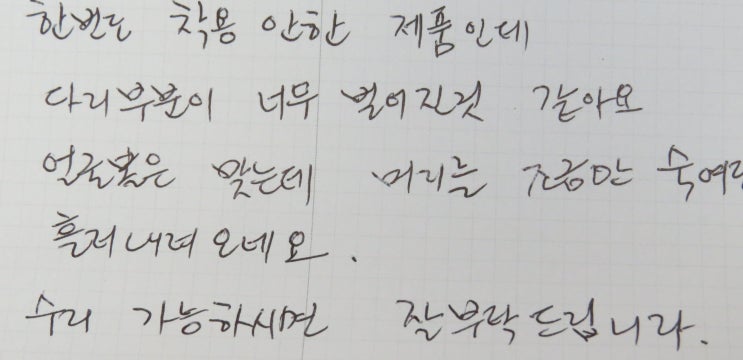 한번도 착용 안한 제품인데
다리부분이 너무 벌어진것 같아요
얼굴폭은 맞는데 머리를 조금만 숙여도
흘러내려 오네요.
수리 가능하시면 잘부탁드립니다.